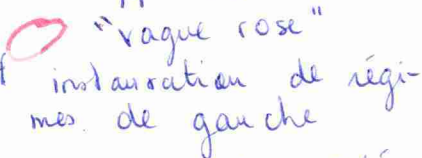 "vague rose"
instauration de régi-
mes de gauche